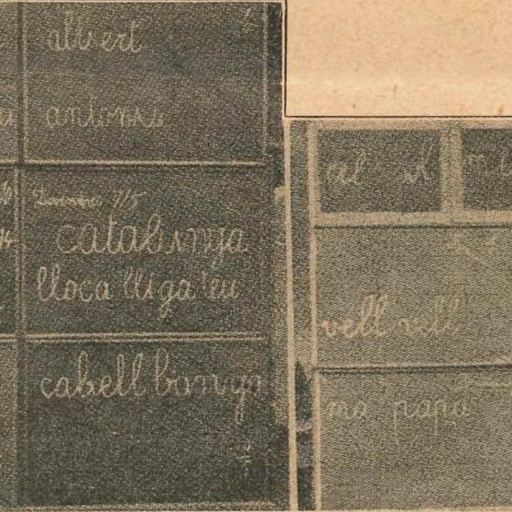 albert
antonia
catalunya
lloca lliga leu
cabell banya
al el
vell vell
ma papa